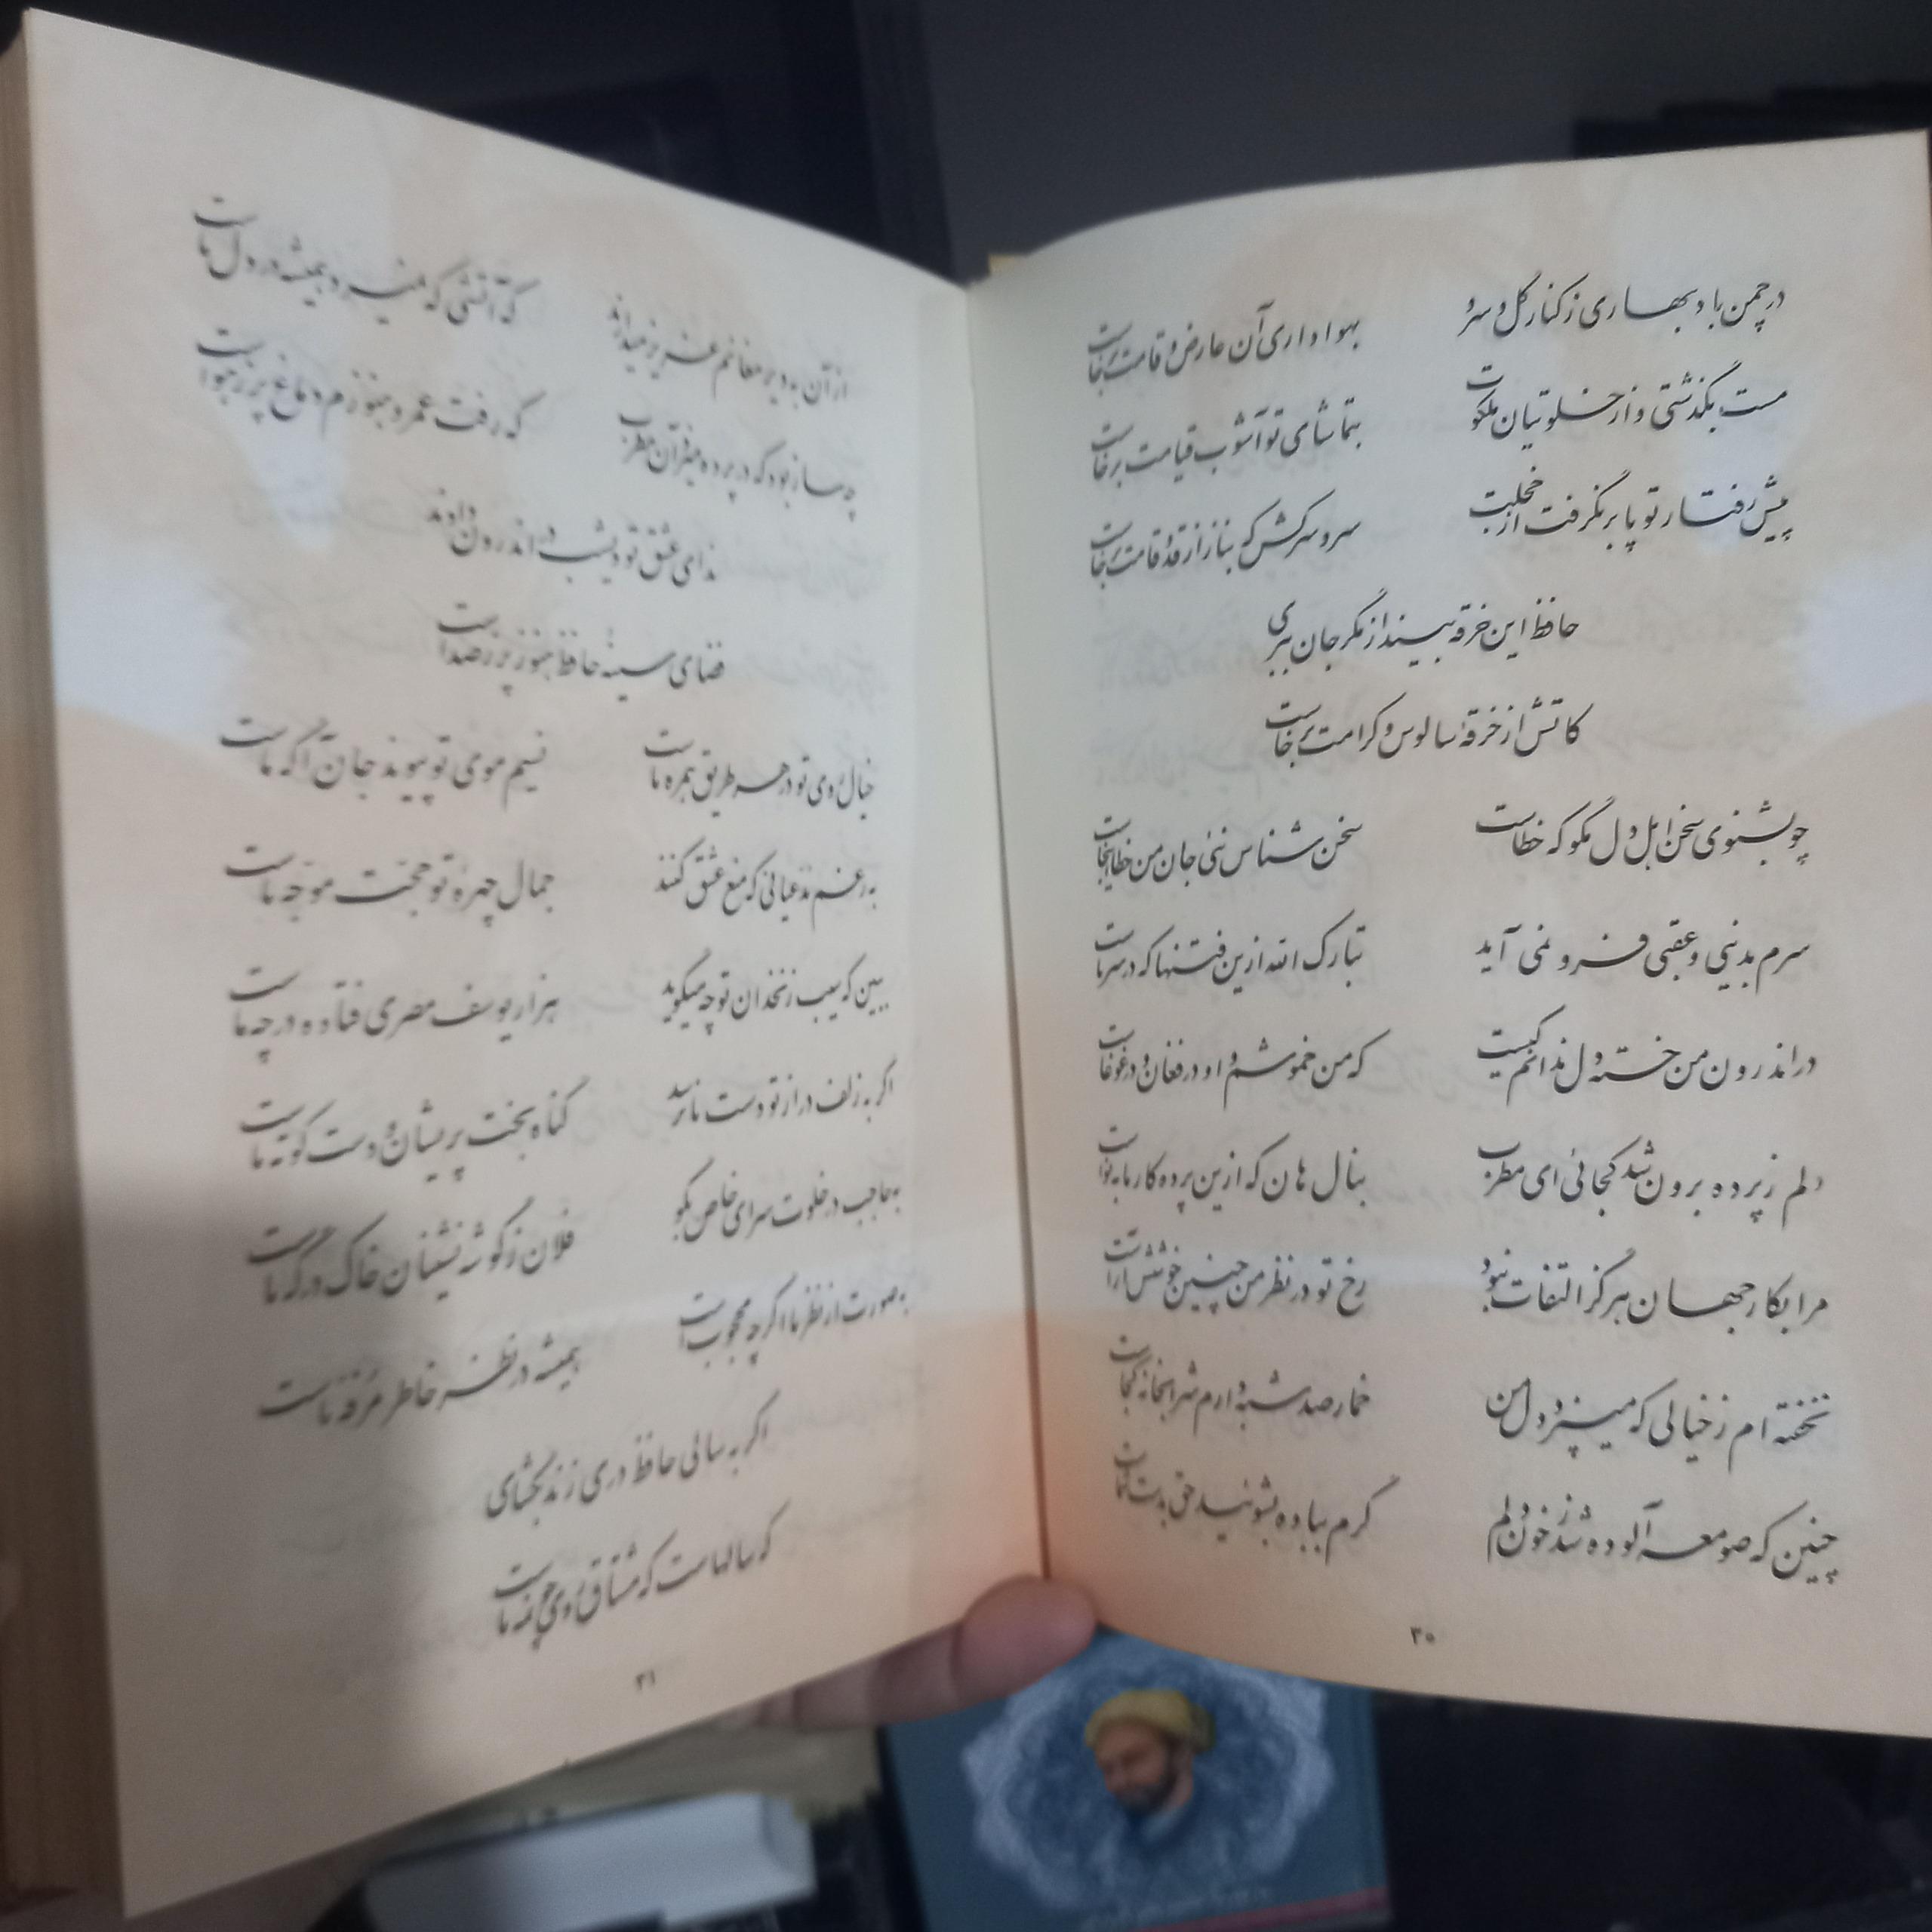 در چمن باد بهاری ز کنار گل و سرو
بهواداری آن عارض و قامت برخاست
مست بگذشتی و از خلوتیان ملکوت
بتماشای تو آشوب قیامت برخاست
پیش رفتار تو پا برنگرفت از خجلت
سرو سرکش که بناز از قد و قامت برخاست
حافظ این خرقه بینداز مگر جان ببری
کاتش از خرقهٔ سالوس و کرامت برخاست
چو بشنوی سخن اهل دل مگو که خطاست
سخن شناس نئی جان من خطا اینجاست
سرم بدنیی و عقبی فرو نمی آید
تبارک الله ازین فتنها که در سر ماست
در اندرون من خسته دل ندانم کیست
که من خموشم و او در فغان و در غوغاست
دلم ز پرده برون شد کجائی ای مطرب
بنال هان که ازین پرده کار ما به نواست
مرا بکار جهان هرگز التفات نبود
رخ تو در نظر من چنین خوشش آراست
نخفته ام ز خیالی که میپزد دل من
خمار صد شبه دارم شرابخانه کجاست
چنین که صومعه آلوده شد ز خون دلم
گرم بباده بشوئید حق بدست شماست
۳۰
از آن به دیر مغانم عزیز میدارند
که آتشی که نمیرد همیشه در دل ماست
چه ساز بود که در پرده میزد آن مطرب
که رفت عمر و هنوزم دماغ پر ز هواست
ندای عشق تو دیشب در اندرون دادند
فضای سینهٔ حافظ هنوز پر ز صداست
خیال روی تو در هر طریق همره ماست
نسیم موی تو پیوند جان آگه ماست
به رغم مدعیانی که منع عشق کنند
جمال چهرهٔ تو حجت موجه ماست
ببین که سیب زنخدان تو چه میگوید
هزار یوسف مصری فتاده در چه ماست
اگر به زلف دراز تو دست ما نرسد
گناه بخت پریشان و دست کوته ماست
به حاجب در خلوت سرای خاص بگو
فلان ز گوشه نشینان خاک درگه ماست
به صورت از نظر ما اگرچه محجوب است
همیشه در نظر خاطر مرفه ماست
اگر به سالی حافظ دری زند بگشای
که سالهاست که مشتاق روی چون مه ماست
۳۱